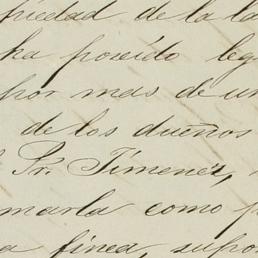 piedad de la la
ha poseido leg
por mas de un
de los dueños
Sr. Jimenez,
marla como p
a finca, supo